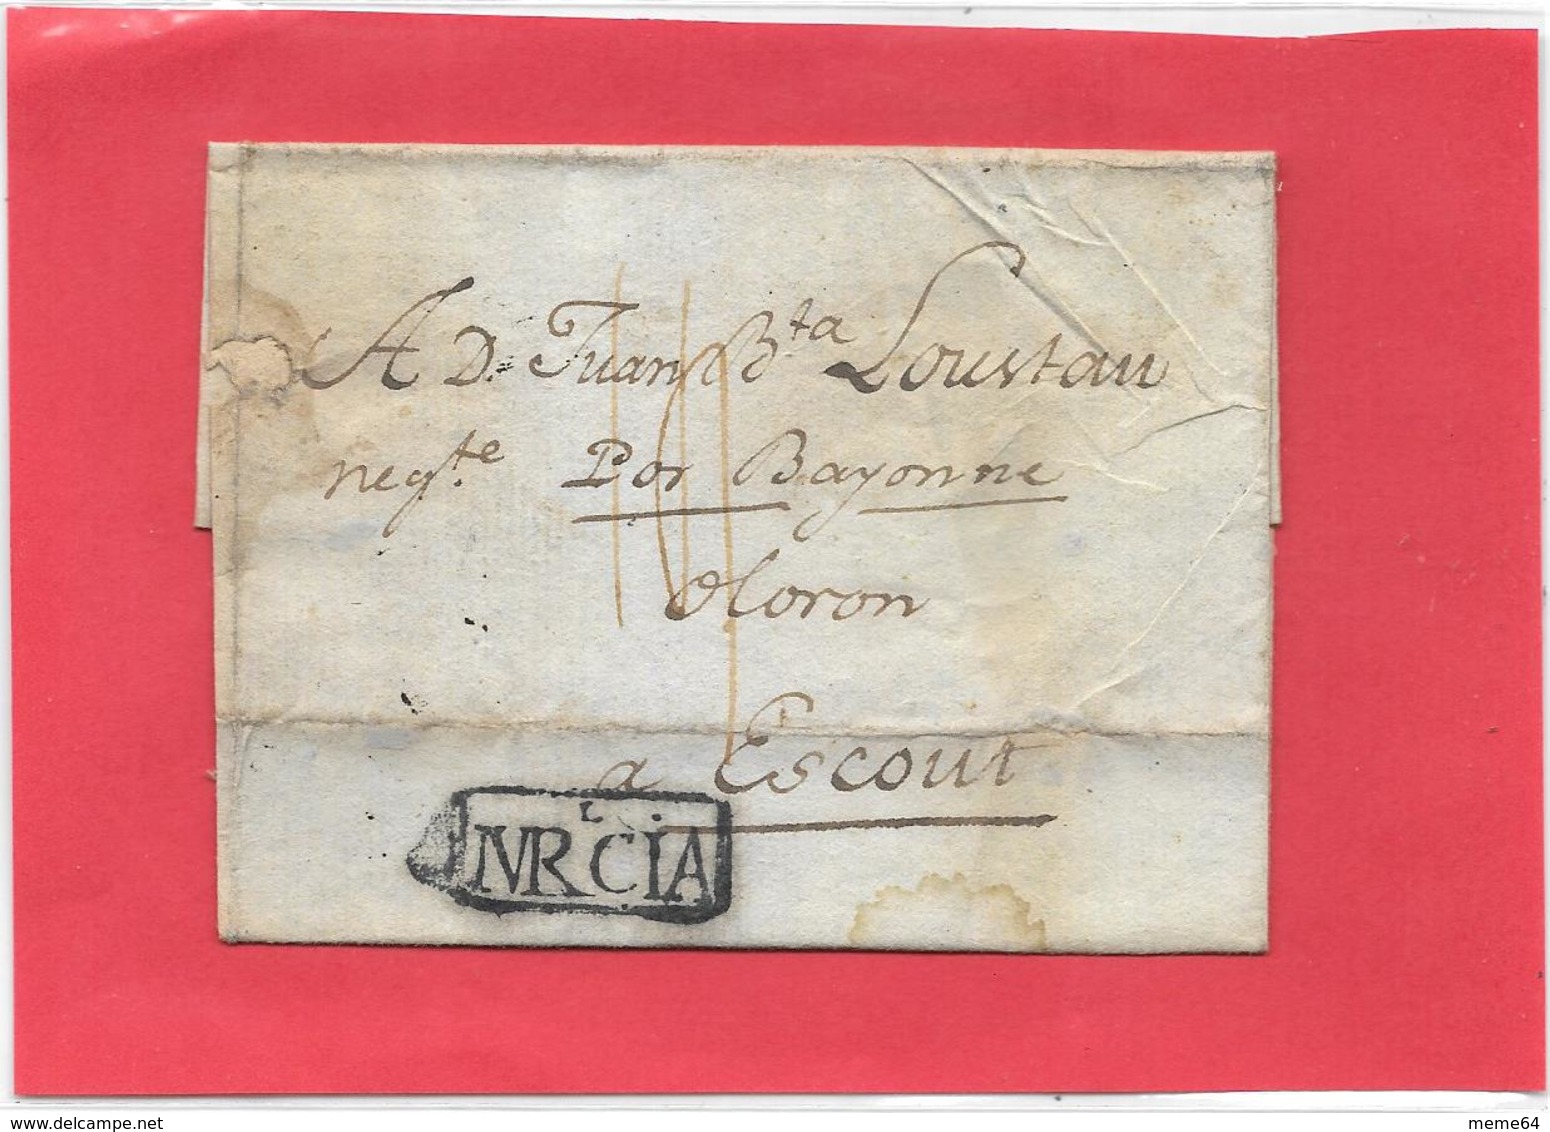 A D. Juan B.ta Loustau
neg.te Por Bayonne
oloron
a Escout
MVRCIA
www.delcampe.net
meme64